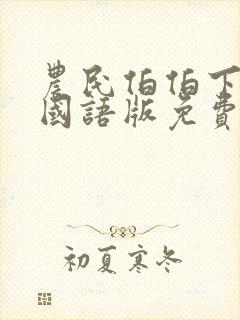 農民伯伯下
國語版免費
初夏寒冬